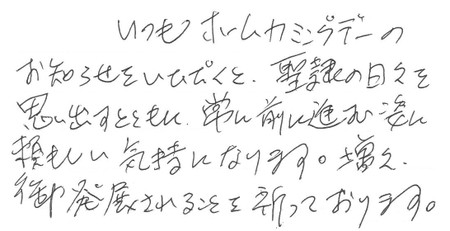 いつもホームカミングデーの
お知らせをいただくと、聖隷の日々を
思い出すとともに、常に前に進む姿に
頼もしい気持になります。増々、
御発展されることを祈っております。